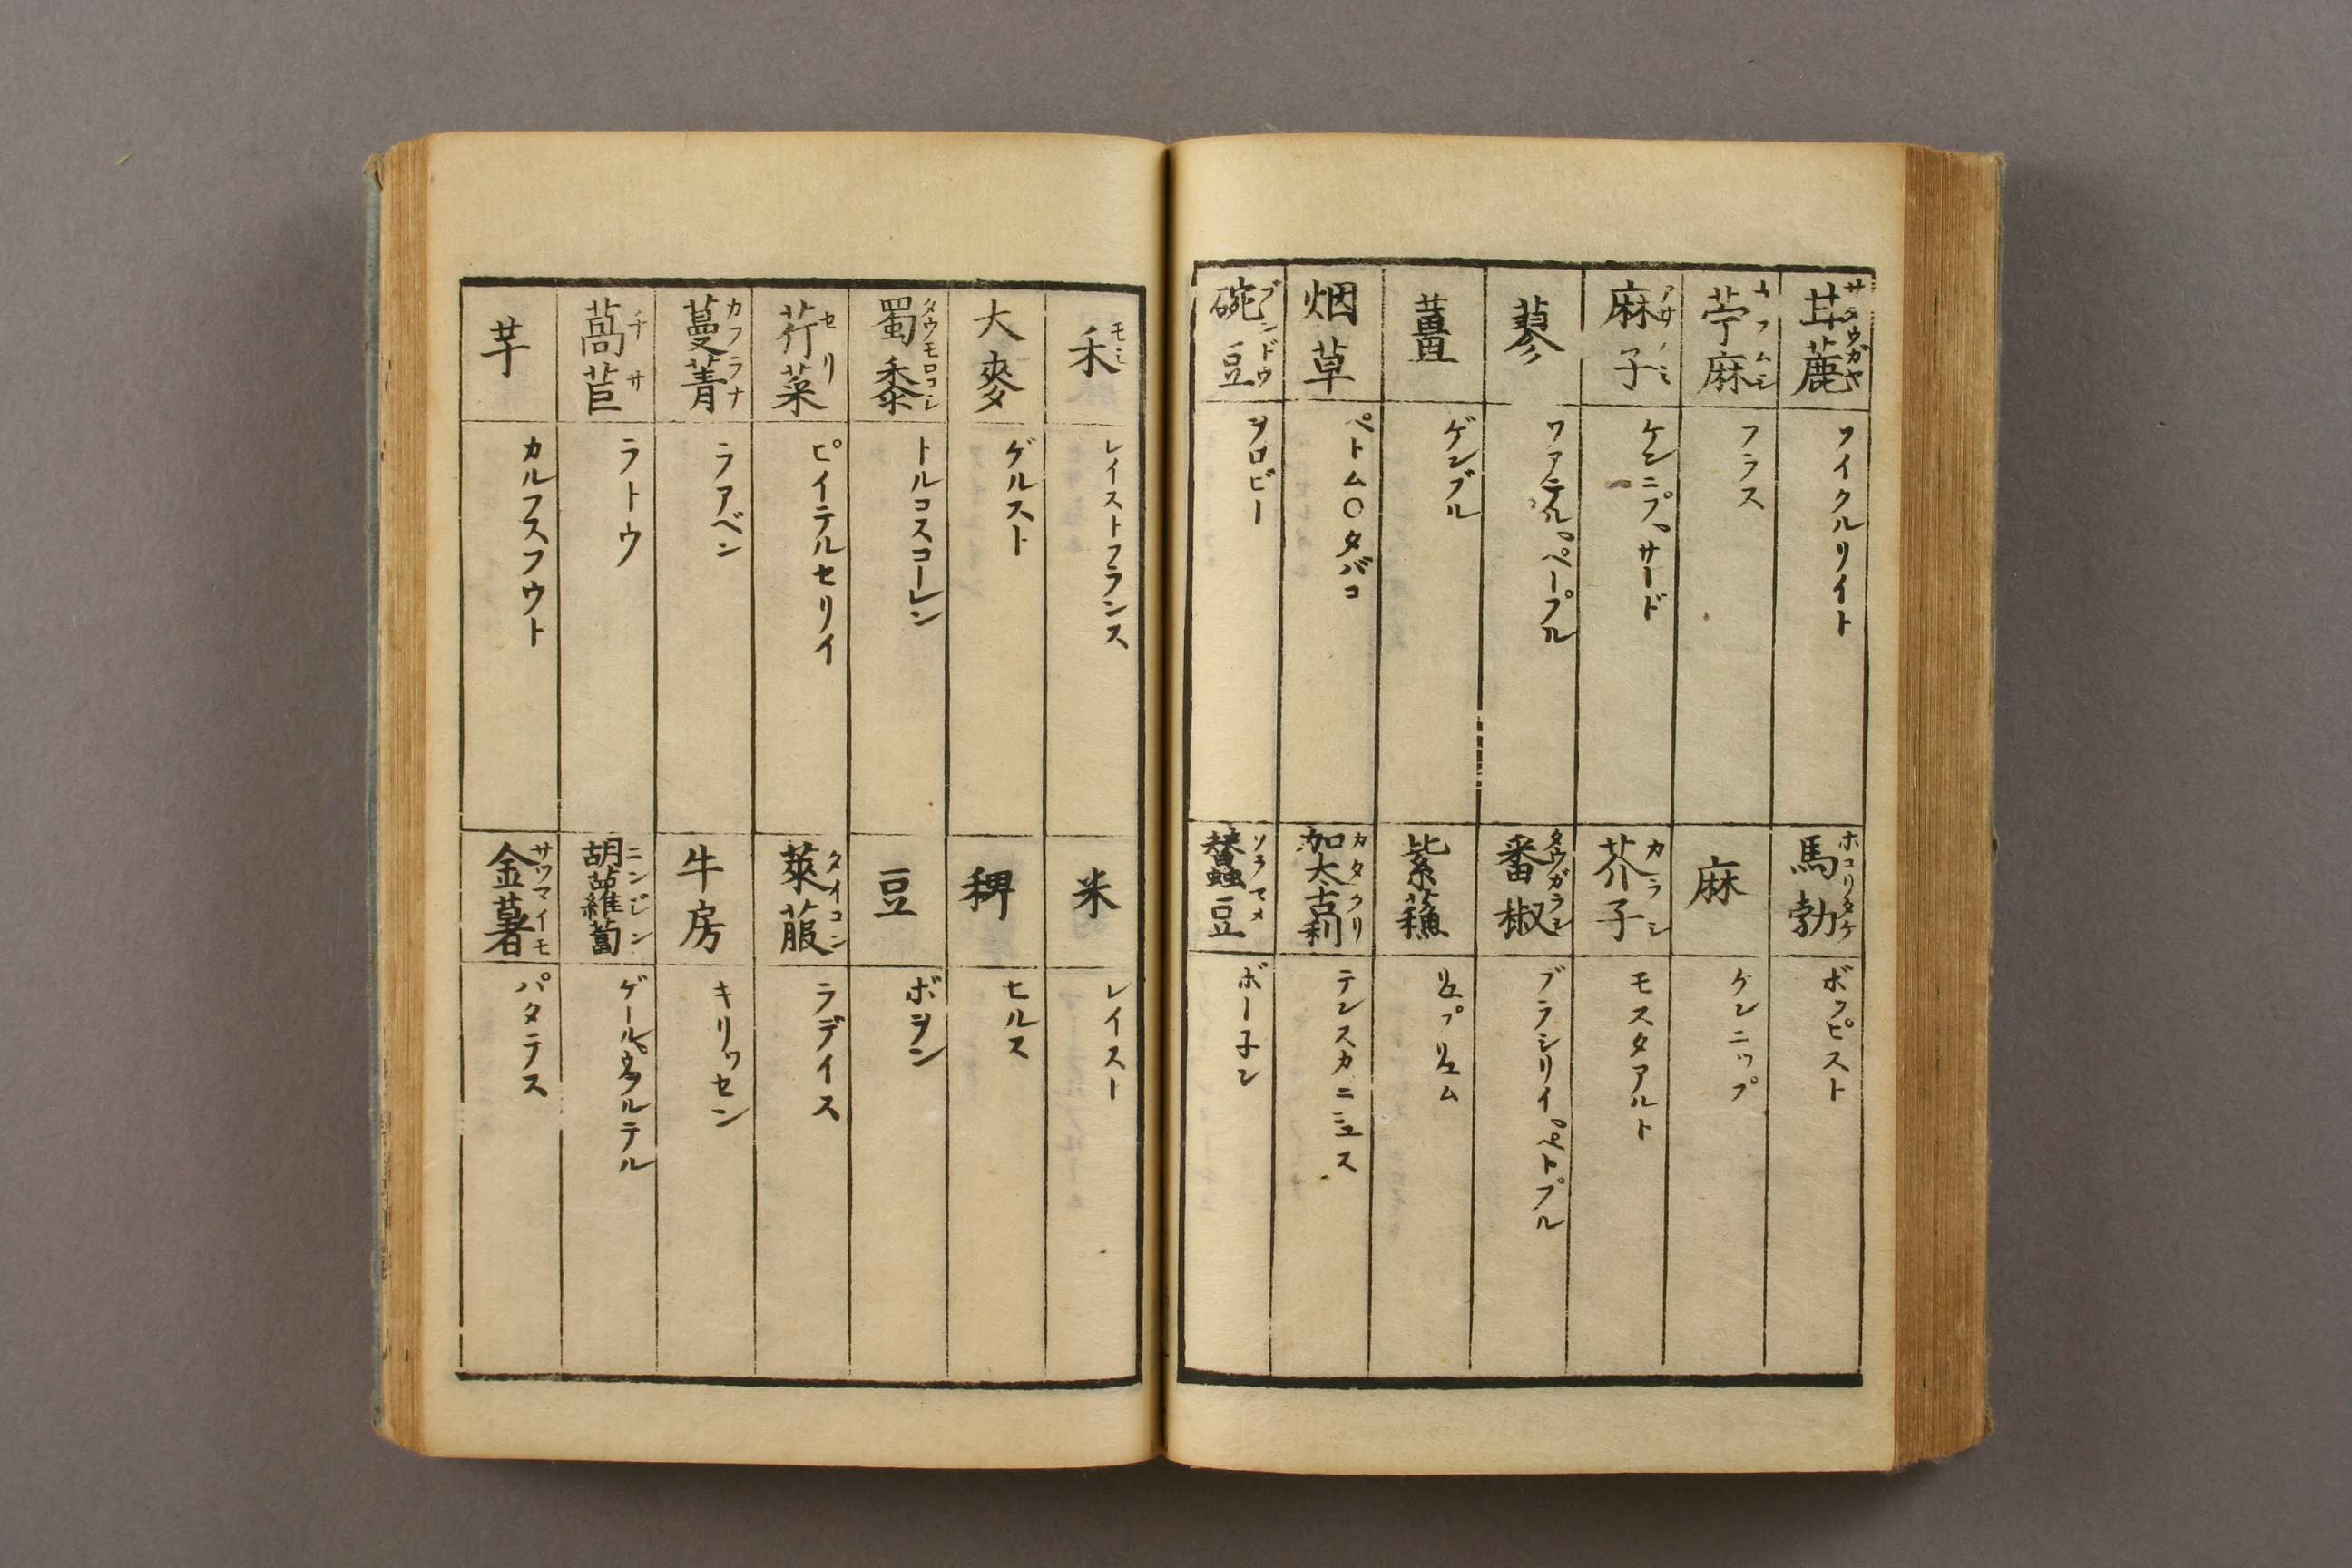 サラウガヤ
茸蔍
ワイクルリイト
馬勃
ホコリタケ
ボッピスト
苧麻
フラス
麻
ケンニップ
麻子
アサノミ
ケンニプ、サード
芥子
カラシ
モスタアルト
蓼
ワアテル、ペープル
番椒
タウガラシ
ブラシリイペトプル
薑
ゲンブル
紫蘓
烟草
ペトム〇タバコ
加太古利
カタクリ
テンスカニユス
豌豆
ブンドウ
ヲロビー
蠶豆
ソラマメ
ボー子ン
禾
モミ
レイストフランス
米
レイスト
大麥
ゲルスト
稗
ヒルス
蜀黍
タウモロコシ
トルコスコーレン
豆
ボヲン
芹菜
セリ
ピイテルセリイ
萊菔
タイコン
ラデイス
蔓菁
カフラナ
ラアベン
牛房
キリッセン
萵苣
チサ
ラトウ
胡蘿蔔
ニンジン
芋
カルフスフウト
金薯
サツマイモ
パタテス